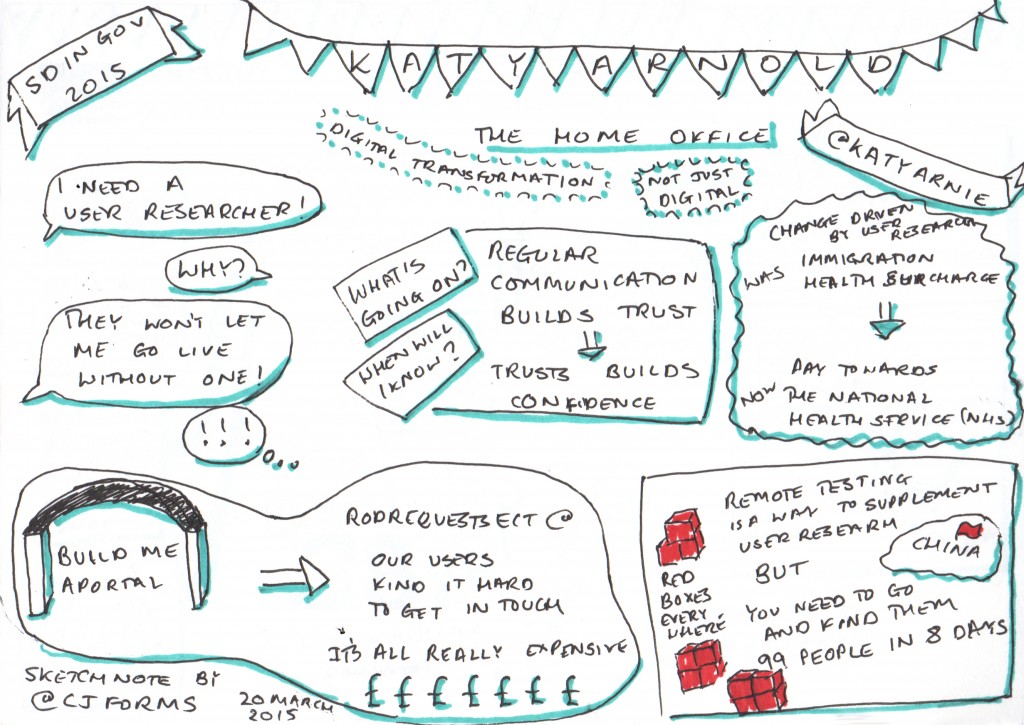 SD IN GOV
2015
KATY ARNOLD
THE HOME OFFICE
@KATYARNIE
DIGITAL TRANSFORMATION
NOT JUST
DIGITAL
I NEED A
USER RESEARCHER!
WHY?
THEY WON'T LET
ME GO LIVE
WITHOUT ONE!
!!!
WHAT IS
GOING ON?
WHEN WILL
I KNOW?
REGULAR
COMMUNICATION
BUILDS TRUST
TRUSTS BUILDS
CONFIDENCE
CHANGE DRIVEN
BY USER RESEARCH
WAS IMMIGRATION
HEALTH SURCHARGE
PAY TOWARDS
NOW THE NATIONAL
HEALTH SERVICE (NHS)
BUILD ME
A PORTAL
OUR USERS
FIND IT HARD
TO GET IN TOUCH
IT'S ALL REALLY EXPENSIVE
£ £ £ £ £ £ £
REMOTE TESTING
IS A WAY TO SUPPLEMENT
USER RESEARCH
CHINA
BUT
YOU NEED TO GO
AND FIND THEM
99 PEOPLE IN 8 DAYS
RED
BOXES
EVERY
WHERE
SKETCHNOTE BY
@CJFORMS
20 MARCH
2015